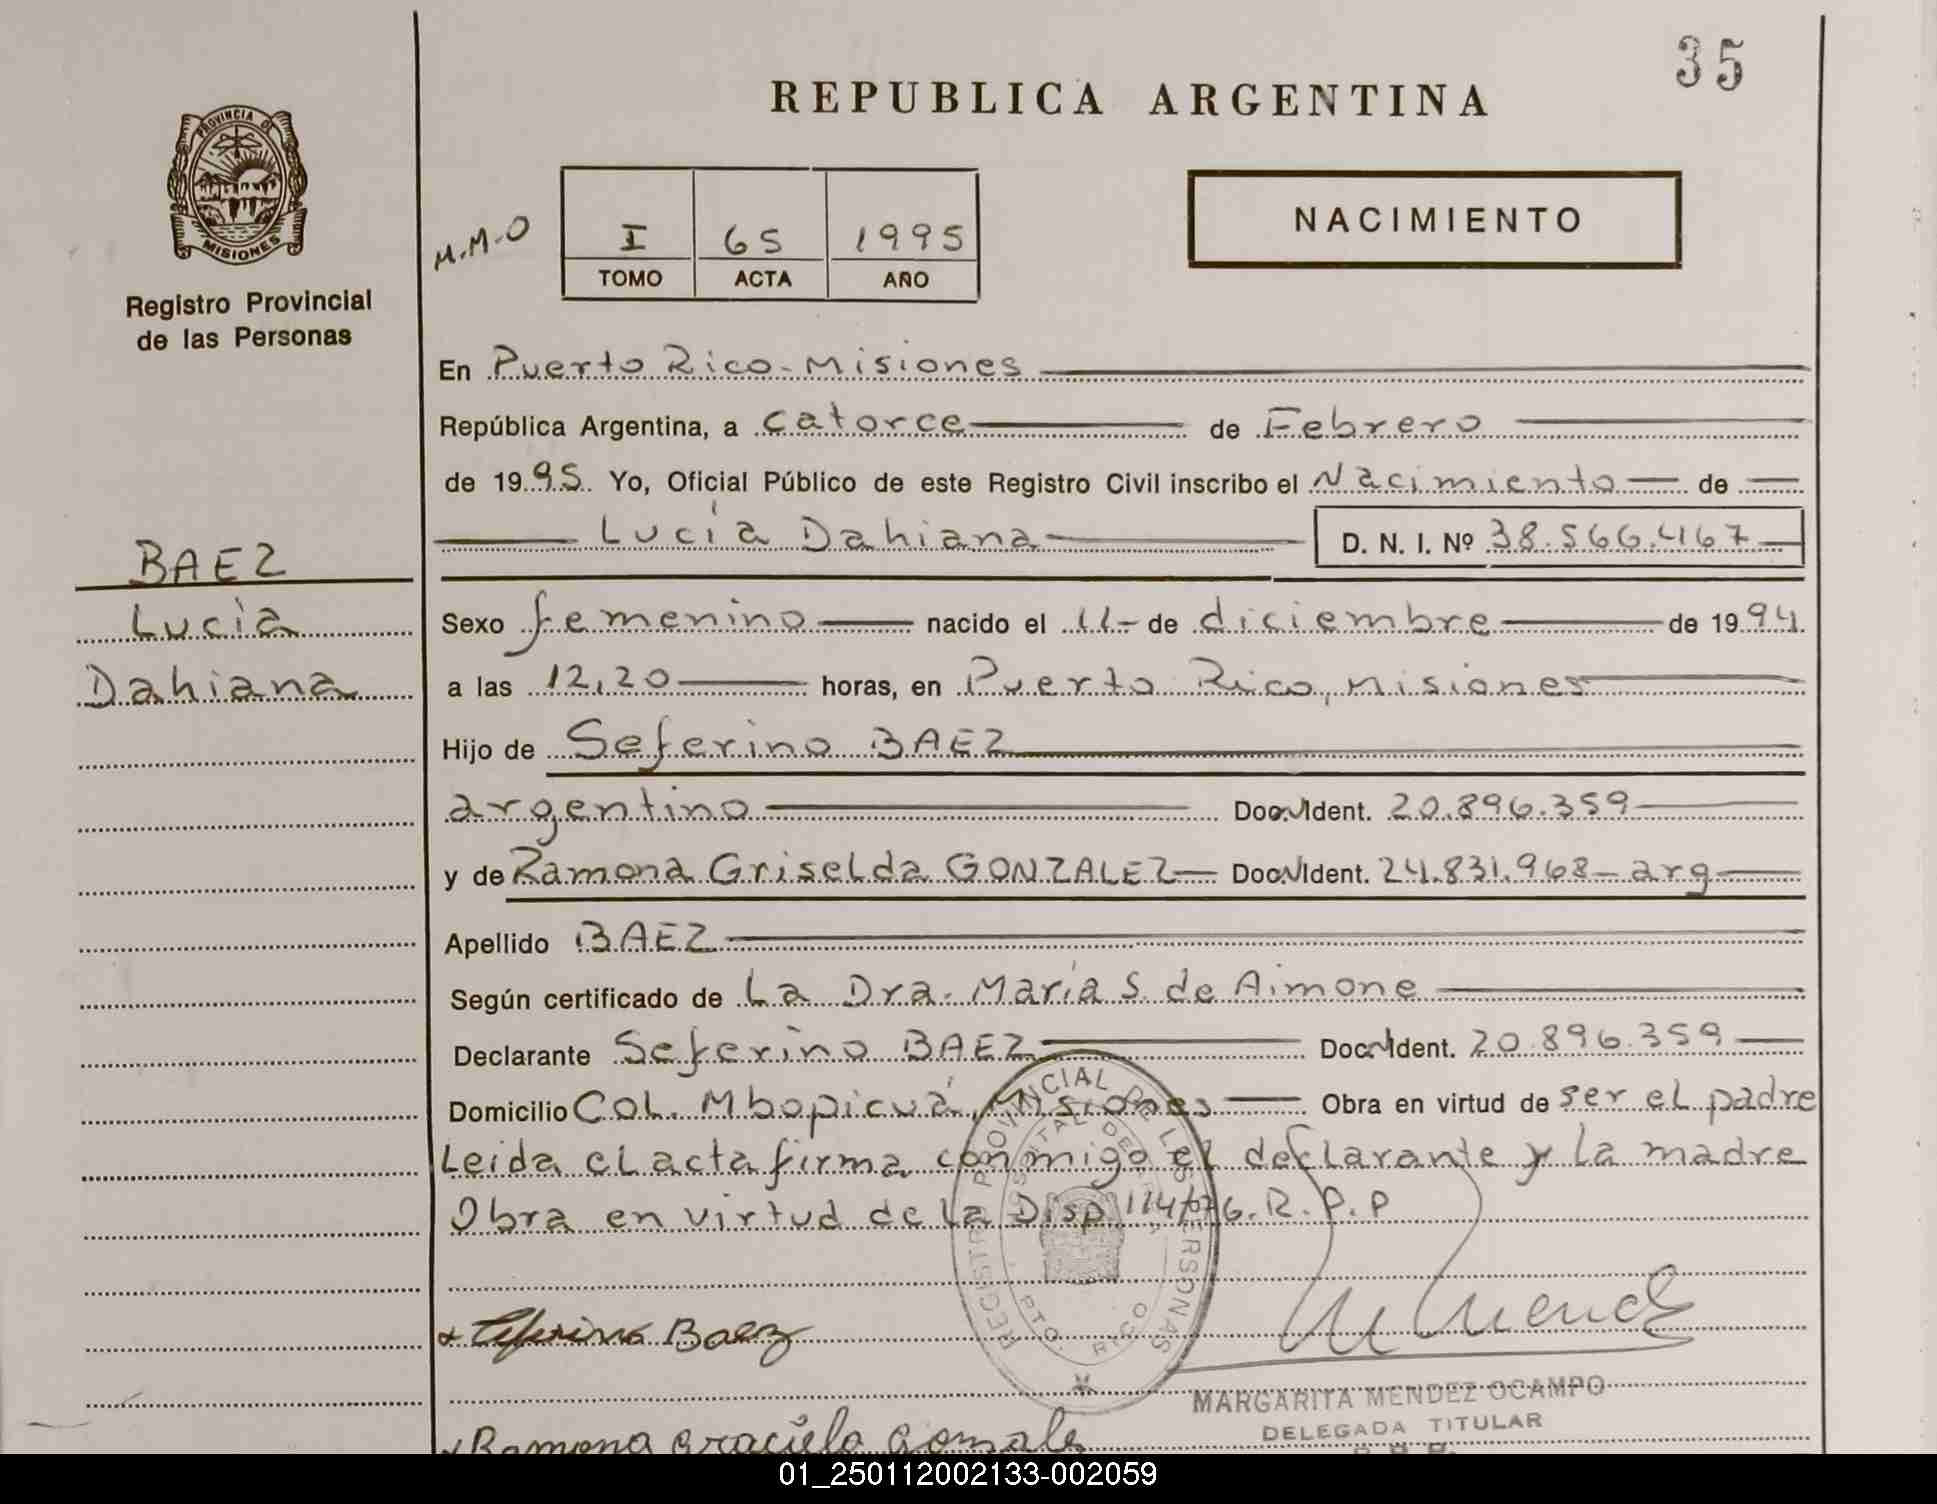 35
REPUBLICA ARGENTINA
PROVINCIA DE
MISIONES
Registro Provincial
de las Personas
M.M.O
I 65 1995
TOMO ACTA AÑO
NACIMIENTO
En Puerto Rico - Misiones
República Argentina, a catorce de Febrero
de 1995. Yo, Oficial Público de este Registro Civil inscribo el Nacimiento de
Lucía Dahiana D. N. I. Nº 38.566.467
BAEZ
Lucía
Dahiana
Sexo femenino nacido el 11 - de diciembre de 1994
a las 12,20 horas, en Puerto Rico, Misiones
Hijo de Seferino BAEZ
argentino Doc. Ident. 20.896.359
y de Ramona Griselda GONZALEZ Doc. Ident. 24.831.968 - arg
Apellido BAEZ
Según certificado de La Dra. María S. de Aimone
Declarante Seferino BAEZ Doc. Ident. 20.896.359
Domicilio Col. Mbopicuá, Misiones Obra en virtud de ser el padre
Leida el acta firma conmigo el declarante y la madre
Obra en virtud de la Disp. 114/76. R.P.P
REGISTRO PROVINCIAL DE LAS PERSONAS
PTO. RICO
Seferino Baez
MARGARITA MENDEZ OCAMPO
DELEGADA TITULAR
Ramona Graciela Gonzales
01_250112002133-002059